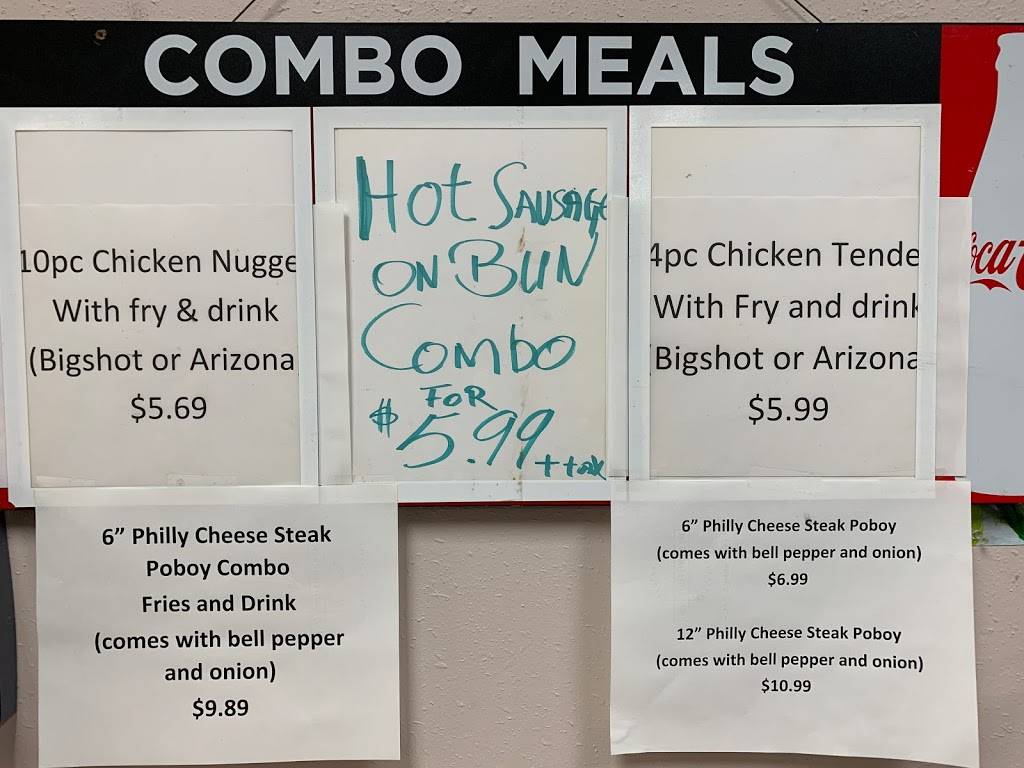 COMBO MEALS
10pc Chicken Nugge
With fry & drink
(Bigshot or Arizona
$5.69
Hot SAUSAGE
ON BUN
Combo
FOR
$5.99 + tax
4pc Chicken Tende
With Fry and drink
(Bigshot or Arizona
$5.99
6” Philly Cheese Steak
Poboy Combo
Fries and Drink
(comes with bell pepper
and onion)
$9.89
6” Philly Cheese Steak Poboy
(comes with bell pepper and onion)
$6.99
12” Philly Cheese Steak Poboy
(comes with bell pepper and onion)
$10.99